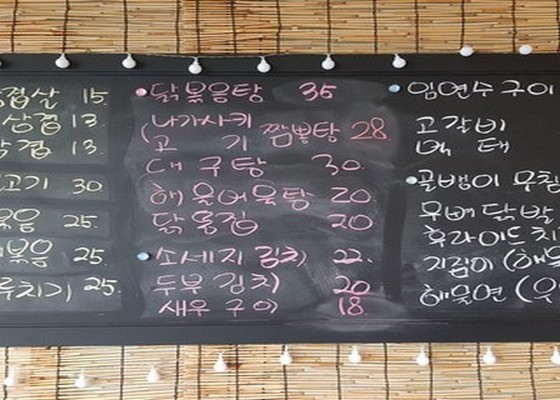 겹살 15.
삼겹 13
겹 13.
고기 30.
볶음 25.
볶음 25
루치기 25.
닭볶음탕 35
(나가사키
고기 짬뽕탕 28.
대구탕 30.
해물어묵탕 20.
닭똥집 20
소세지 김치 22.
두부 김치 20
새우 구이 18.
임연수 구이
고갈비
먹태
골뱅이 무침
무뼈 닭발
후라이드 치
지짐이 (해물
해물면 (우